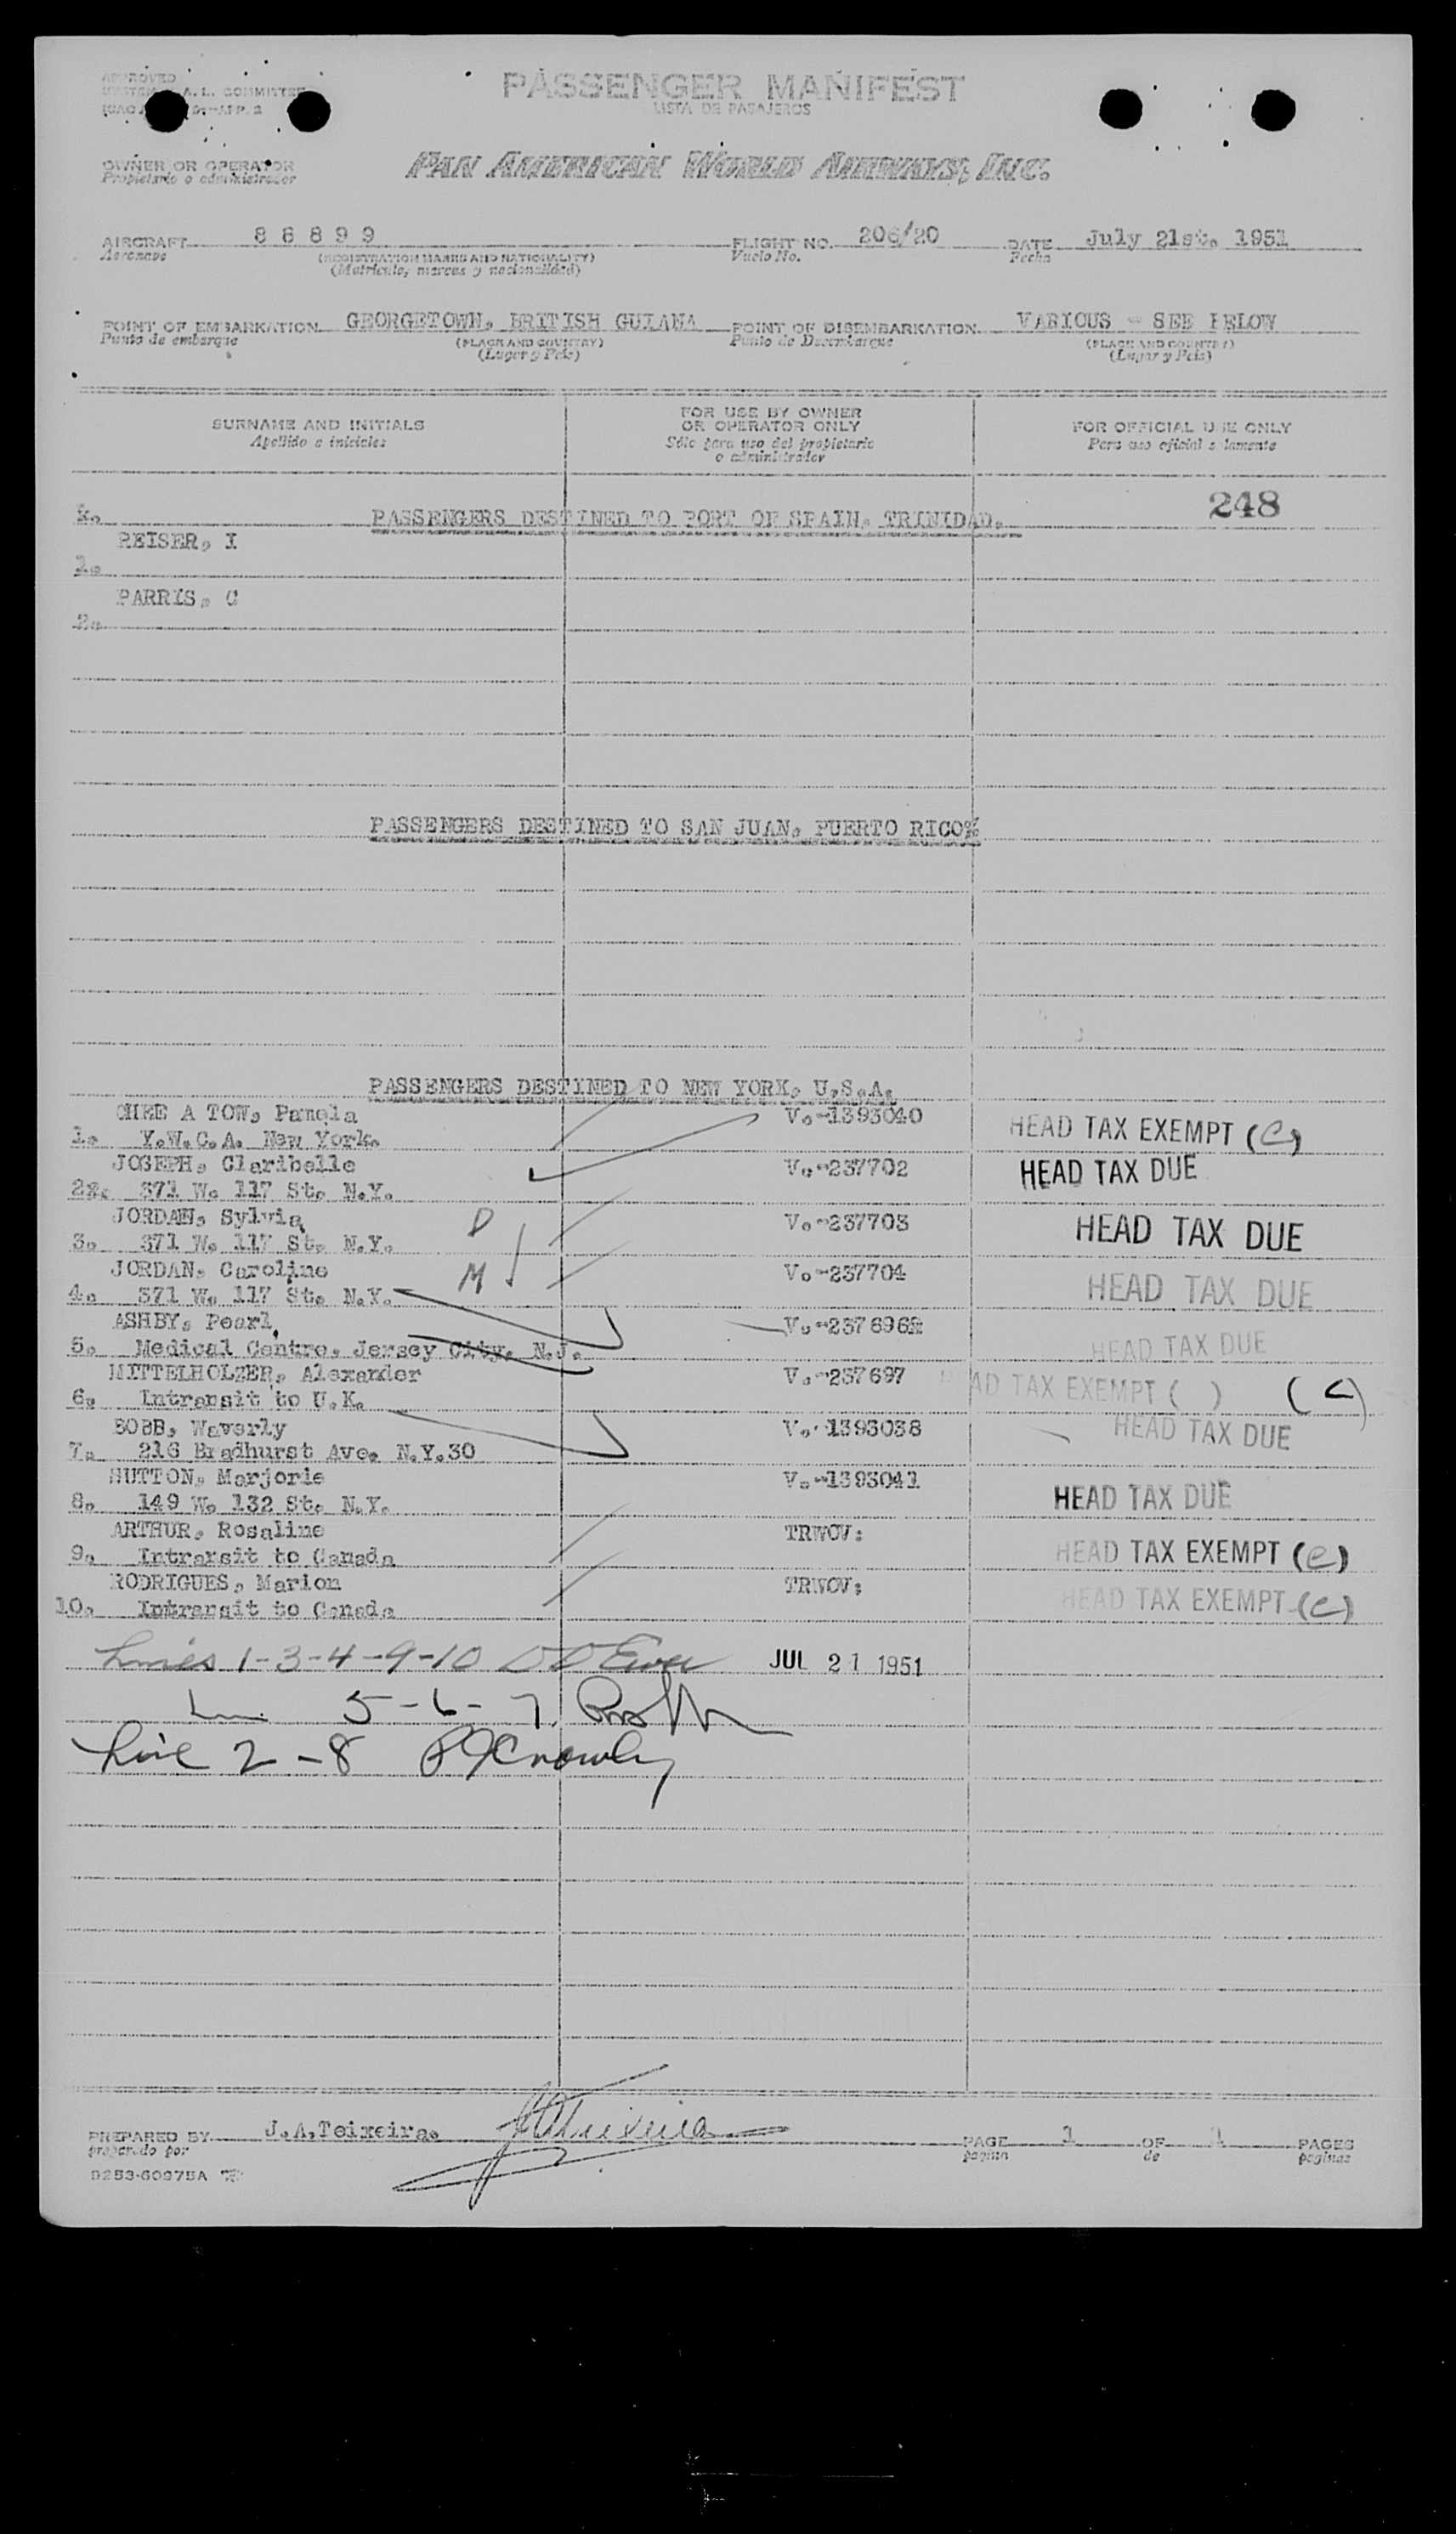 APPROVED
PASSENGER MANIFEST
A. L. COMMITTEE
LISTA DE PASAJEROS
OWNER OR OPERATOR
Propietario o administrador
PAN AMERICAN WORLD AIRWAYS, INC.
AIRCRAFT 88899 FLIGHT NO. 206/20 DATE July 21st. 1951
Aeronave (REGISTRATION MARKS AND NATIONALITY) Vuelo No. Fecha
(Matricula, marcas y nacionalidad)
POINT OF EMBARKATION GEORGETOWN, BRITISH GUIANA POINT OF DISEMBARKATION VARIOUS - SEE BELOW
Punto de embarque (PLACE AND COUNTRY) Punto de Desembarque (PLACE AND COUNTRY)
(Lugar y País) (Lugar y País)
SURNAME AND INITIALS FOR USE BY OWNER OR OPERATOR ONLY FOR OFFICIAL USE ONLY
Apellido e iniciales Sólo para uso del propietario o administrador Para uso oficial solamente
248
PASSENGERS DESTINED TO PORT OF SPAIN, TRINIDAD.
REISER, I
1.
PARRIS, C
2.
PASSENGERS DESTINED TO SAN JUAN, PUERTO RICO%
PASSENGERS DESTINED TO NEW YORK, U.S.A.
CHEE A TOW, Pamela V.-1393040
1. Y.W.C.A. New York. HEAD TAX EXEMPT (C)
JOSEPH, Claribelle V.-237702 HEAD TAX DUE
2. 371 W. 117 St. N.Y.
JORDAN, Sylvia D V.-237703 HEAD TAX DUE
3. 371 W. 117 St. N.Y.
JORDAN, Caroline M V.-237704 HEAD TAX DUE
4. 371 W. 117 St. N.Y.
ASHBY, Pearl V.-237696 HEAD TAX DUE
5. Medical Centre, Jersey City. N.J.
MITTELHOLZER, Alexander V.-237697 HEAD TAX EXEMPT ( ) (C)
6. Intransit to U.K.
BOBB, Waverly V.-1393038 HEAD TAX DUE
7. 216 Bradhurst Ave. N.Y.30
SUTTON, Marjorie V.-1393041 HEAD TAX DUE
8. 149 W. 132 St. N.Y.
ARTHUR, Rosaline TRWOV:
9. Intransit to Canada HEAD TAX EXEMPT (C)
RODRIGUES, Marion TRWOV:
10. Intransit to Canada HEAD TAX EXEMPT (C)
Lines 1-3-4-9-10 JUL 21 1951
5-6-7
Line 2-8
PREPARED BY J.A.Teixeira. PAGE 1 OF 1 PAGES
preparado por pagina de paginas
9253-60975A